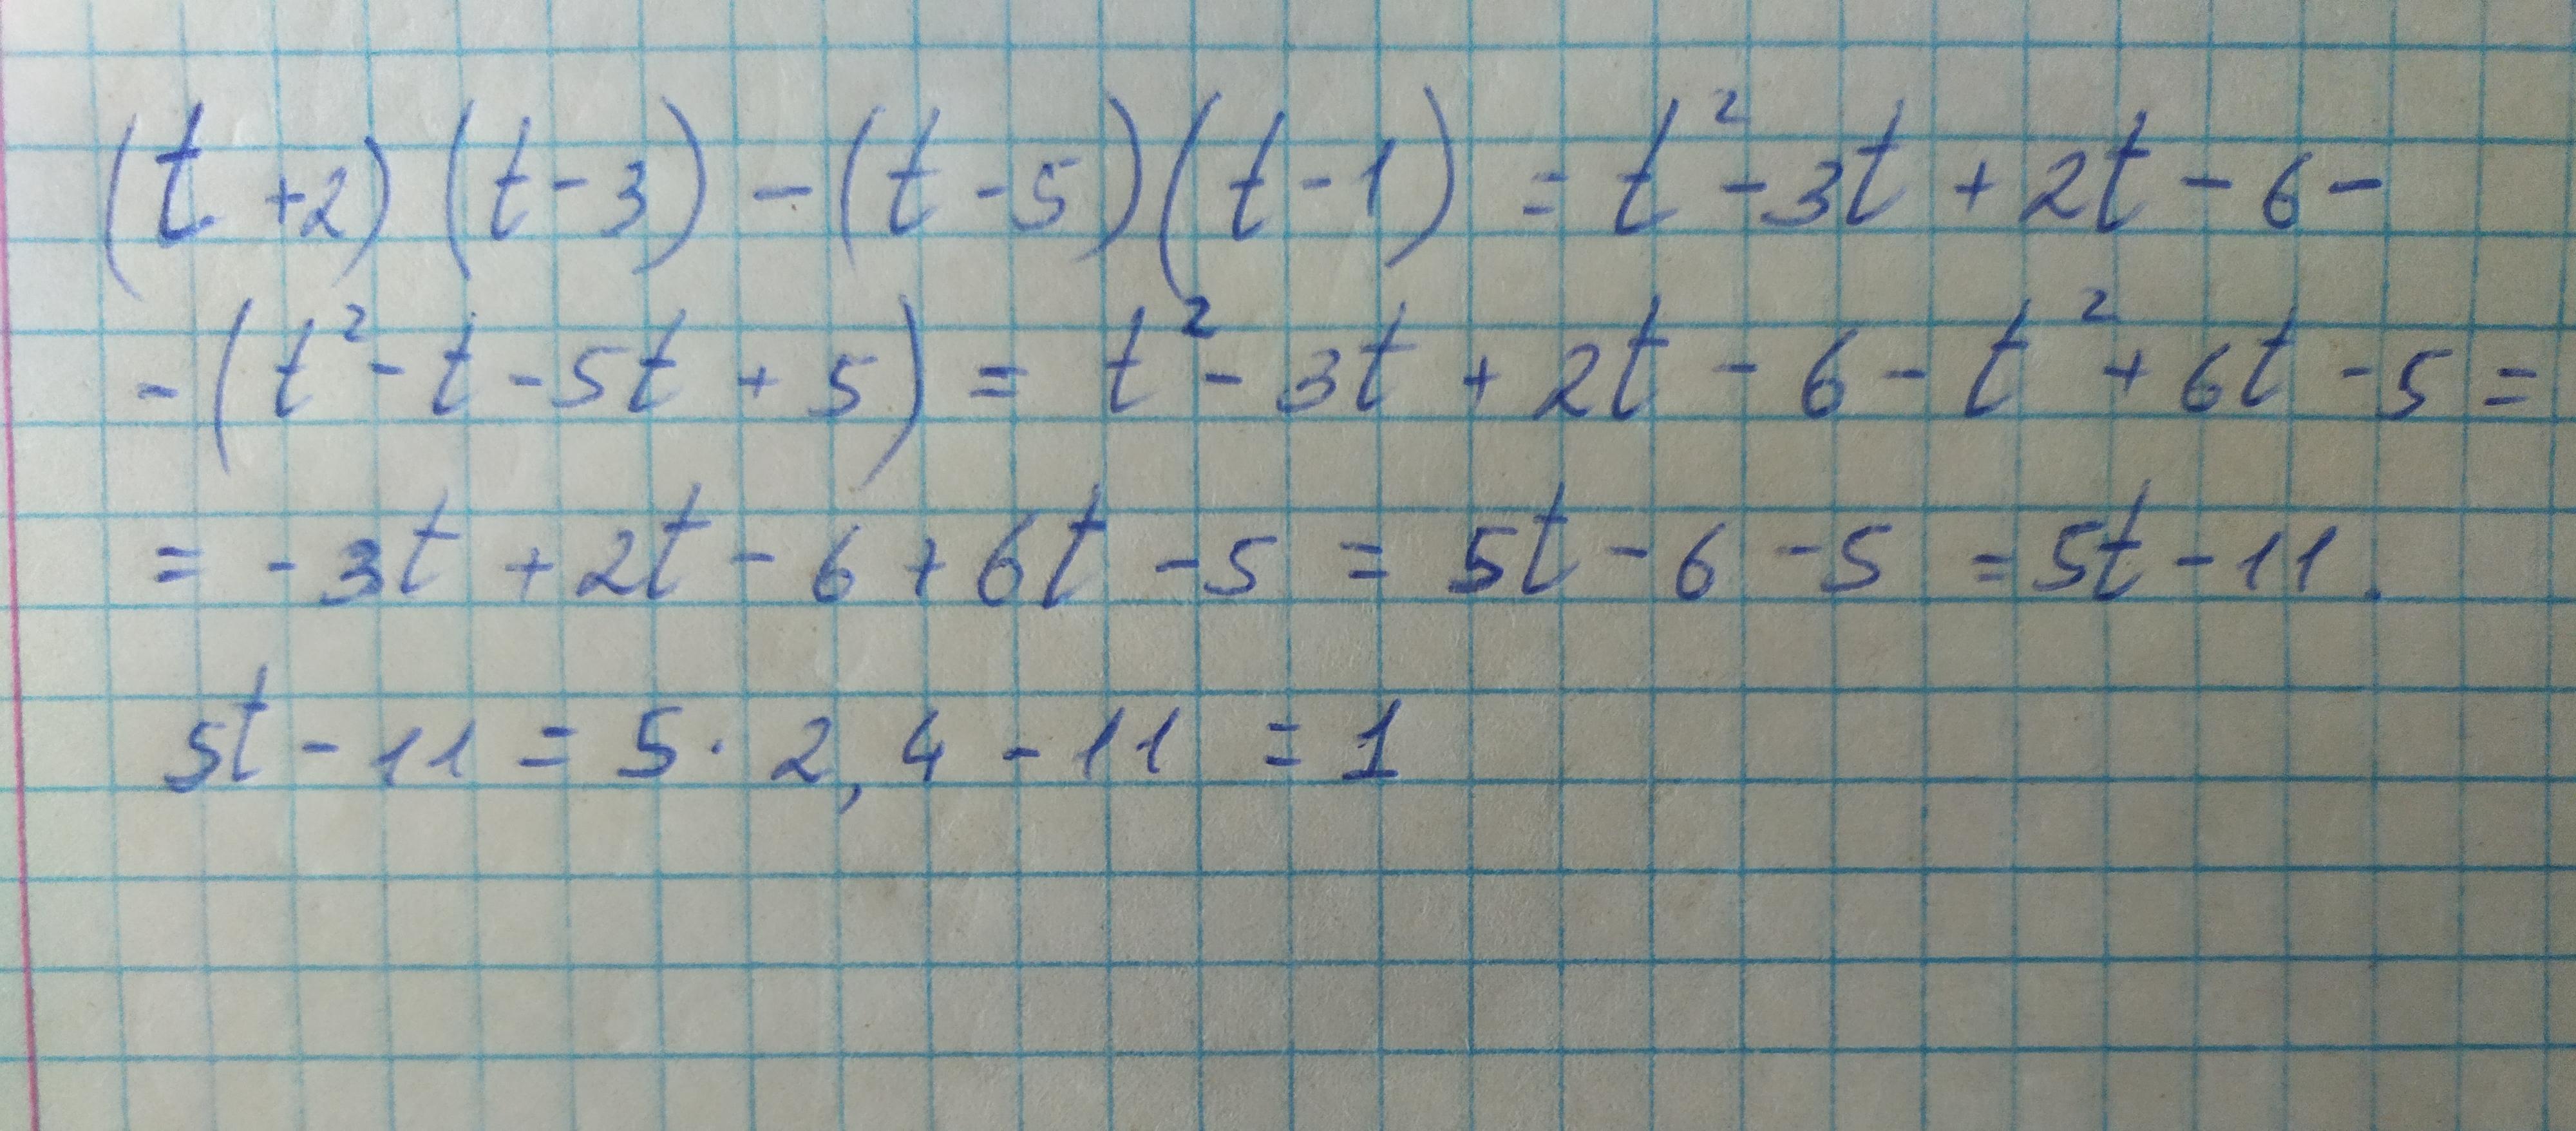 (t+2)(t-3)-(t-5)(t-1)=t²-3t+2t-6-
-(t²-t-5t+5)=t²-3t+2t-6-t²+6t-5=
=-3t+2t-6+6t-5=5t-6-5=5t-11.
5t-11=5·2,4-11=1